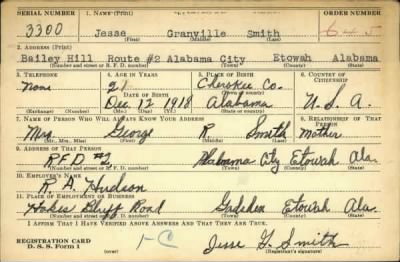 SERIAL NUMBER 1. NAME (Print) ORDER NUMBER
3300 Jesse Granville Smith 645
(First) (Middle) (Last)
2. ADDRESS (Print)
Bailey Hill Route #2 Alabama City Etowah Alabama
(Number and street or R. F. D. number) (Town) (County) (State)
3. TELEPHONE 4. AGE IN YEARS 5. PLACE OF BIRTH 6. COUNTRY OF CITIZENSHIP
None 21 Cherokee Co.
DATE OF BIRTH
Dec 12 1918 Alabama U.S.A.
(Exchange) (Number) (Mo.) (Day) (Yr.) (State or country)
7. NAME OF PERSON WHO WILL ALWAYS KNOW YOUR ADDRESS 8. RELATIONSHIP OF THAT PERSON
Mrs. George R. Smith Mother
(Mr., Mrs., Miss) (First) (Middle) (Last)
9. ADDRESS OF THAT PERSON
RFD #2 Alabama City Etowah Ala.
(Number and street or R. F. D. number) (Town) (County) (State)
10. EMPLOYER'S NAME
R. A. Hudson
11. PLACE OF EMPLOYMENT OR BUSINESS
Hokes Bluff Road Gadsden Etowah Ala.
(Number and street or R. F. D. number) (Town) (County) (State)
I AFFIRM THAT I HAVE VERIFIED ABOVE ANSWERS AND THAT THEY ARE TRUE.
REGISTRATION CARD
D. S. S. Form 1 (over) 1-C Jesse G. Smith
(Registrant's signature)